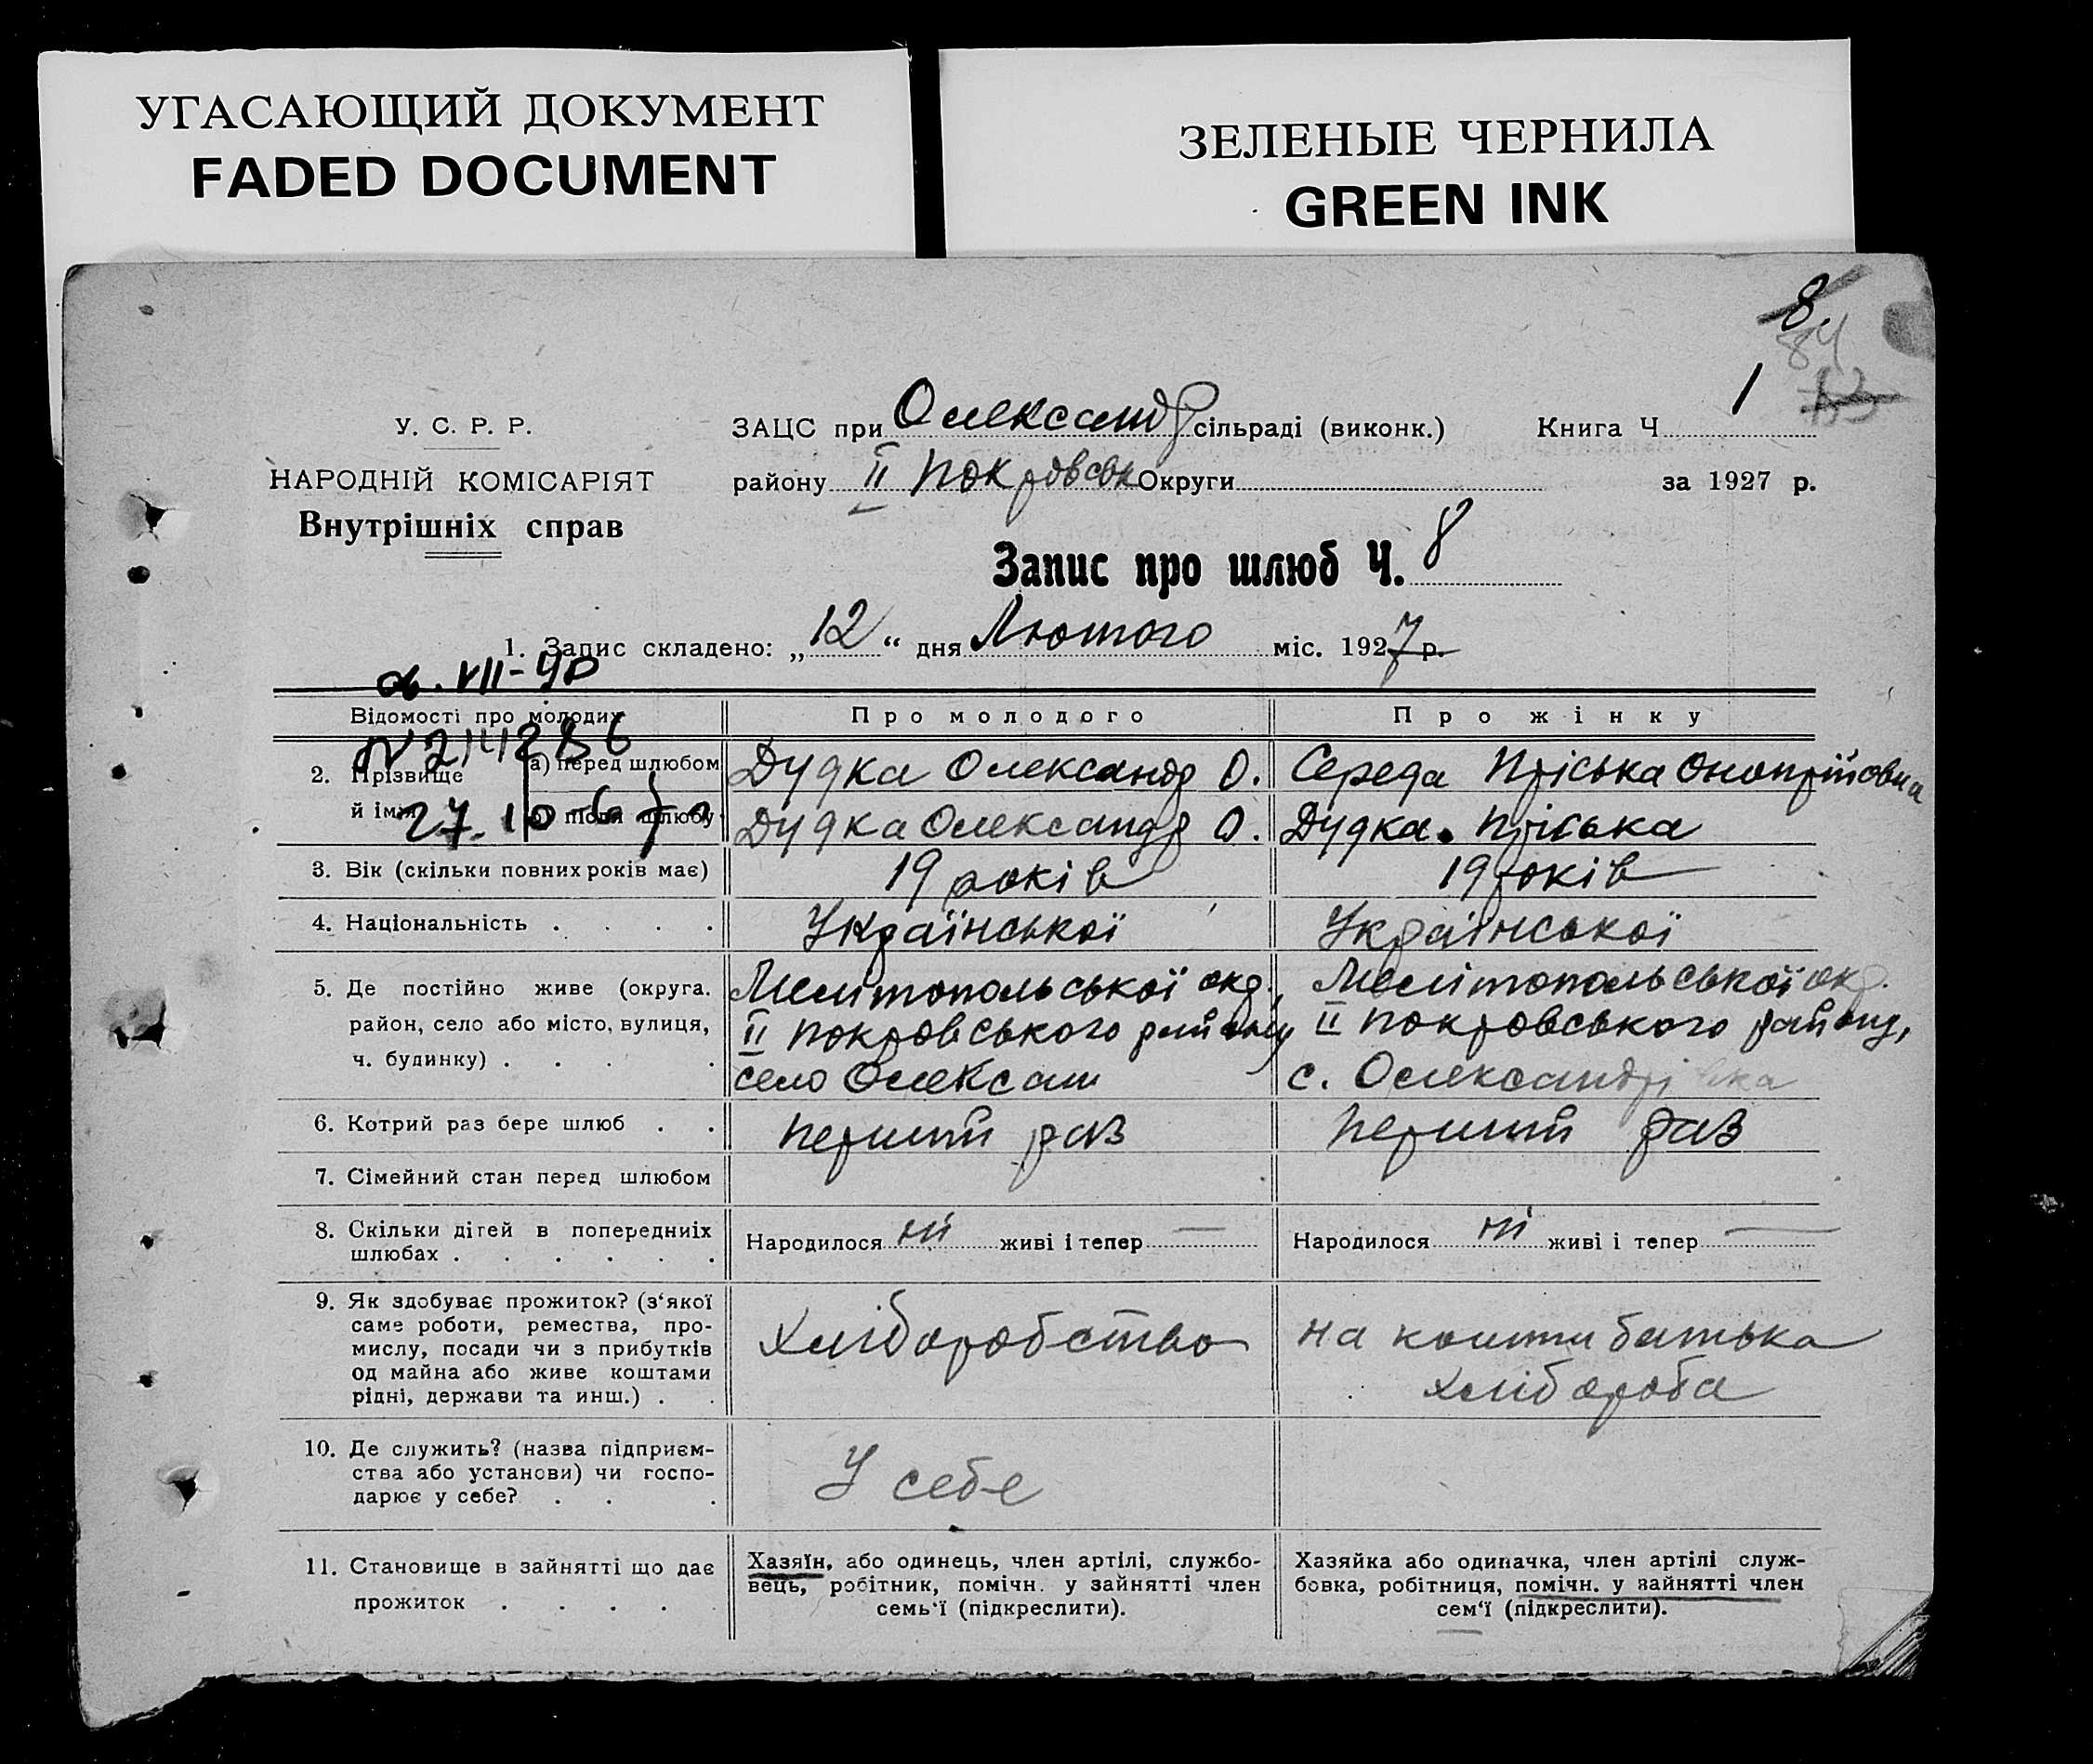 УГАСАЮЩИЙ ДОКУМЕНТ
FADED DOCUMENT
ЗЕЛЕНЫЕ ЧЕРНИЛА
GREEN INK
8.
84
13
У. С. Р. Р.
НАРОДНІЙ КОМІСАРІЯТ
Внутрішніх справ
ЗАЦС при Олександр сільраді (виконк.) Книга Ч. 1
району II Покровськ Округи за 1927 р.
Запис про шлюб Ч. 8
1. Запис складено: „12“ дня Лютого міс. 1927 р.
VII-ЧР
Відомості про молодих Про молодого Про жінку
2. Прізвище й ім'я
27.10
а) перед шлюбом Дудка Олександр О. Середа Пріська Онопрійовна
б) після шлюбу Дудка Олександр О. Дудка Пріська
3. Вік (скільки повних років має) 19 років 19 років
4. Національність . . . . Української Української
5. Де постійно живе (округа, район, село або місто, вулиця, ч. будинку) . . . .
Мелітопольської окр.
II Покровського району
село Олексан
Мелітопольської окр.
II Покровського району,
с. Олександрівка
6. Котрий раз бере шлюб . . перший раз перший раз
7. Сімейний стан перед шлюбом
8. Скільки дітей в попередниіх шлюбах . . . . . . Народилося ні живі і тепер — Народилося ні живі і тепер —
9. Як здобуває прожиток? (з‘якої
саме роботи, ремества, про-
мислу, посади чи з прибутків
од майна або живе коштами
рідні, держави та инш.) . .
Хліборобство
на кошти батька
хлібороба
10. Де служить? (назва підприєм-
ства або установи) чи госпо-
дарює у себе? . . .
У себе
11. Становище в зайнятті що дає
прожиток . . . .
Хазяїн, або одинець, член артілі, службо-
вець, робітник, помічн. у зайнятті член
семь‘ї (підкреслити).
Хазяйка або одиначка, член артілі служ-
бовка, робітниця, помічн. у зайнятті член
сем‘ї (підкреслити).